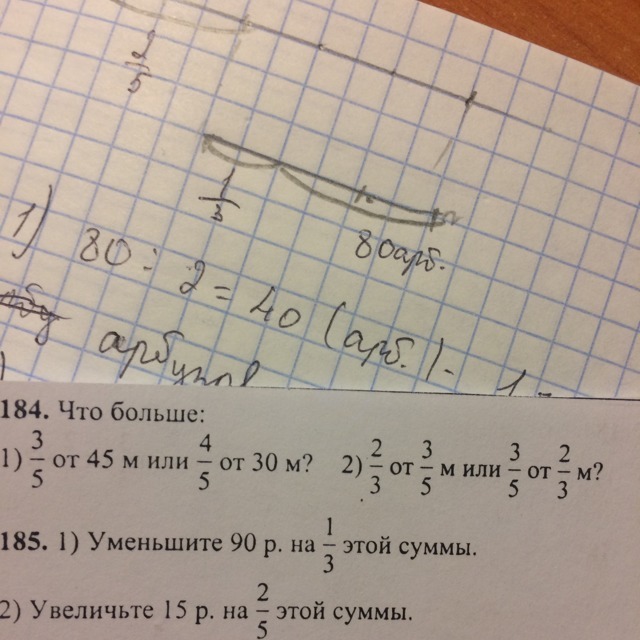 2/5
1/3
80 арб.
1) 80 : 2 = 40 (арб.) -
арбузов
184. Что больше:
1) 3/5 от 45 м или 4/5 от 30 м? 2) 2/3 от 3/5 м или 3/5 от 2/3 м?
185. 1) Уменьшите 90 р. на 1/3 этой суммы.
2) Увеличьте 15 р. на 2/5 этой суммы.